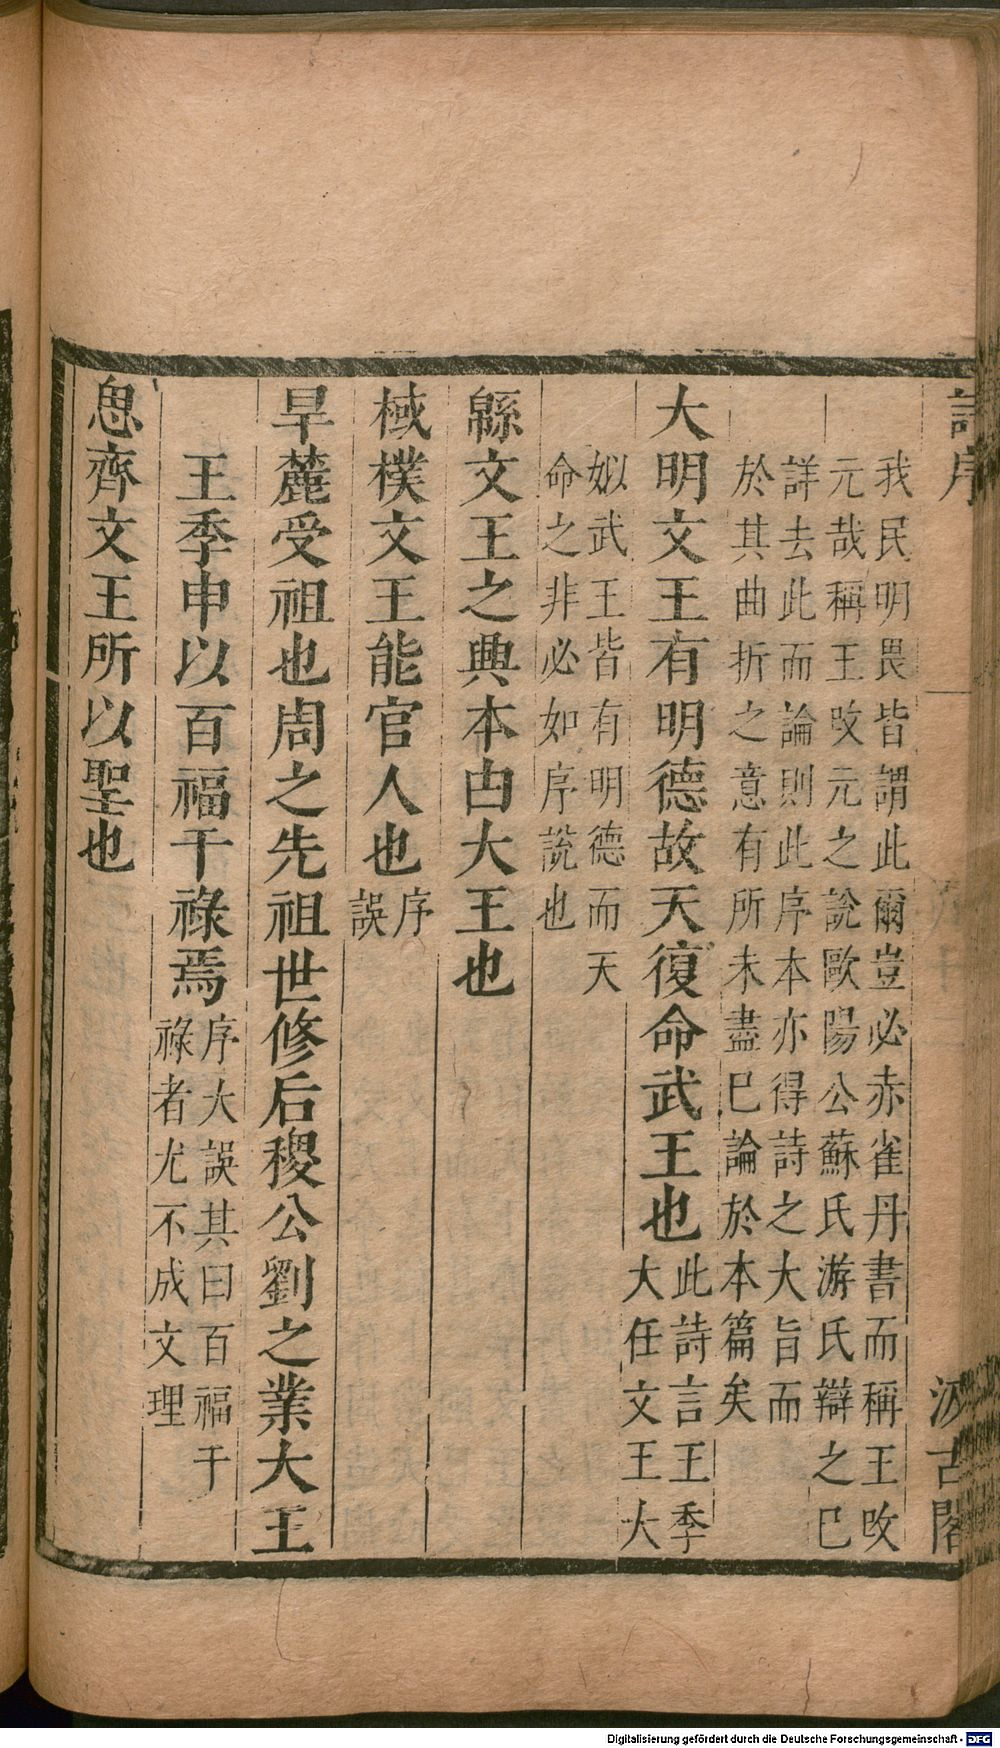 詩序
汲古閣
我民明畏皆謂此爾豈必赤雀丹書而稱王改
元哉稱王改元之說歐陽公蘇氏游氏辯之已
詳去此而論則此序本亦得詩之大旨而
於其曲折之意有所未盡已論於本篇矣
大明文王有明德故天復命武王也
此詩言王季
大任文王大
姒武王皆有明德而天
命之非必如序說也
緜文王之興本由大王也
棫樸文王能官人也
序
誤
旱麓受祖也周之先祖世修后稷公劉之業大王
王季申以百福干祿焉
序大誤其曰百福干
祿者尤不成文理
思齊文王所以聖也
Digitalisierung gefördert durch die Deutsche Forschungsgemeinschaft - DFG